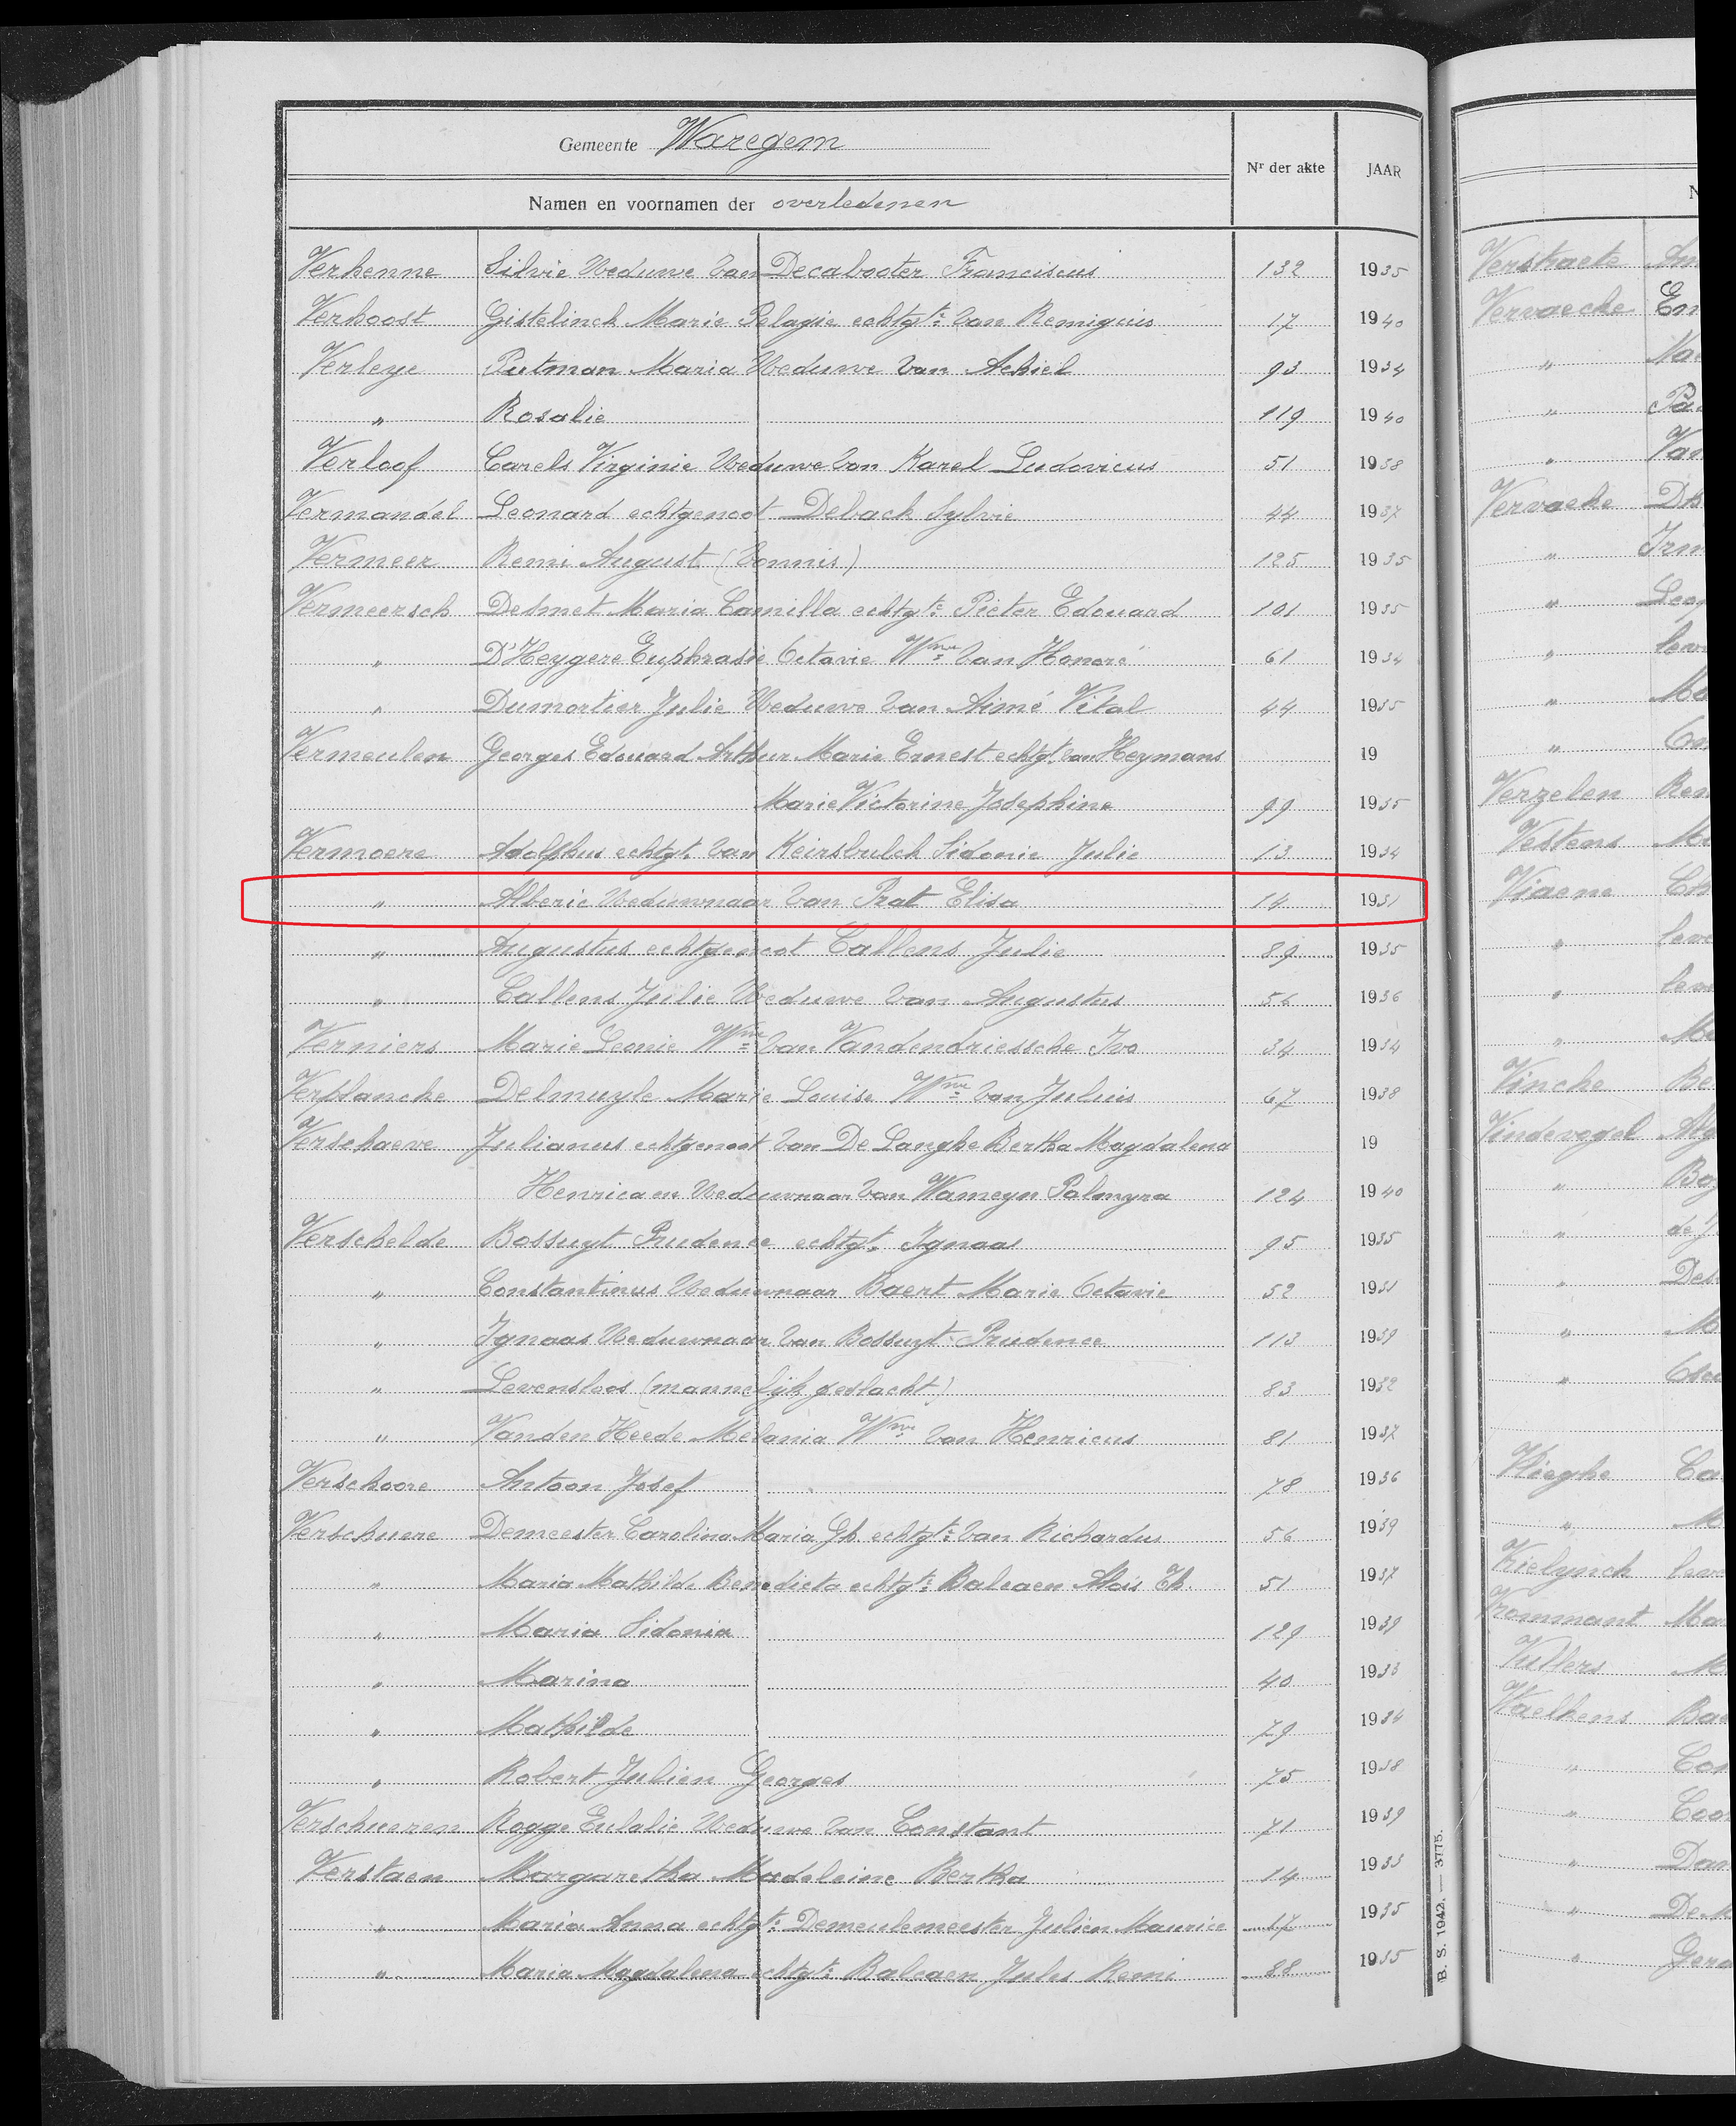 Gemeente Waregem
Nr der akte JAAR
Namen en voornamen der overledenen
Verhenne Silvie Weduwe Van Decabooter Franciscus 132 1935
Verhoost Gistelinck Marie Pelagie echtgte Van Remigius 17 1940
Verleye Putman Maria Weduwe Van Achiel 93 1934
" Rosalie 119 1940
Verloof Carels Virginie Weduwe Van Karel Ludovicus 51 1938
Vermandel Leonard echtgenoot Debach Sylvie 44 1937
Vermeer Remi August (Vonnis) 125 1935
Vermeersch Desmet Maria Camilla echtgte Pieter Edouard 101 1935
" D'Heygere Euphrasie Octavie Wwe Van Honoré 61 1934
" Dumortier Julie Weduwe Van Aimé Vital 44 1935
Vermeulen Georges Edouard Arthur Marie Ernest echtgt Van Heymans 19
Marie Victorine Josephine 99 1935
Vermoere Adolphus echtgt Van Keirsbulck Sidonie Julie 13 1934
" Alberic Weduwnaar Van Prat Elisa 14 1931
" Augustus echtgenoot Callens Julie 89 1935
" Callens Julie Weduwe Van Augustus 56 1936
Verniers Marie Leonie Wwe Van Vandendriessche Ivo 34 1934
Verplancke Delmuyle Marie Louise Wwe Van Julius 67 1938
Verschaeve Julianus echtgenoot Van De Langhe Bertha Magdalena 19
Henrica en Weduwnaar Van Wameyn Palmyra 124 1940
Verschelde Bossuyt Prudence echtgt Ignaas 95 1935
" Constantinus Weduwnaar Baert Marie Octavie 52 1931
" Ignaas Weduwnaar Van Bossuyt Prudence 113 1939
" Levensloos (mannelijk geslacht) 83 1932
" Vanden Heede Melania Wwe Van Henricus 81 1937
Verschoore Antoon Josef 78 1936
Verschuere Demeester Carolina Maria Gh. echtgte Van Richardus 56 1939
" Maria Mathilde Benedicta echtgte Balcaen Aloïs Th. 51 1937
" Maria Sidonia 129 1939
" Marina 40 1933
" Mathilde 79 1934
" Robert Julien Georges 75 1938
Verschueren Rogge Eulalie Weduwe Van Constant 71 1939
Verstaen Margaretha Madeleine Bertha 14 1933
" Maria Anna echtgte Demeulemeester Julien Maurice 17 1935
" Maria Magdalena echtgte Balcaen Jules Remi 88 1935
B. S. 1942. — 3775.
Verstraete
Vervaecke
"
"
"
Vervaeke
"
"
"
"
"
Verzelen
Vestens
Viaene
"
"
"
Vincke
Vindevogel
"
"
"
"
"
"
Vrommant
Vullers
Waelkens
"
"
"
"
"